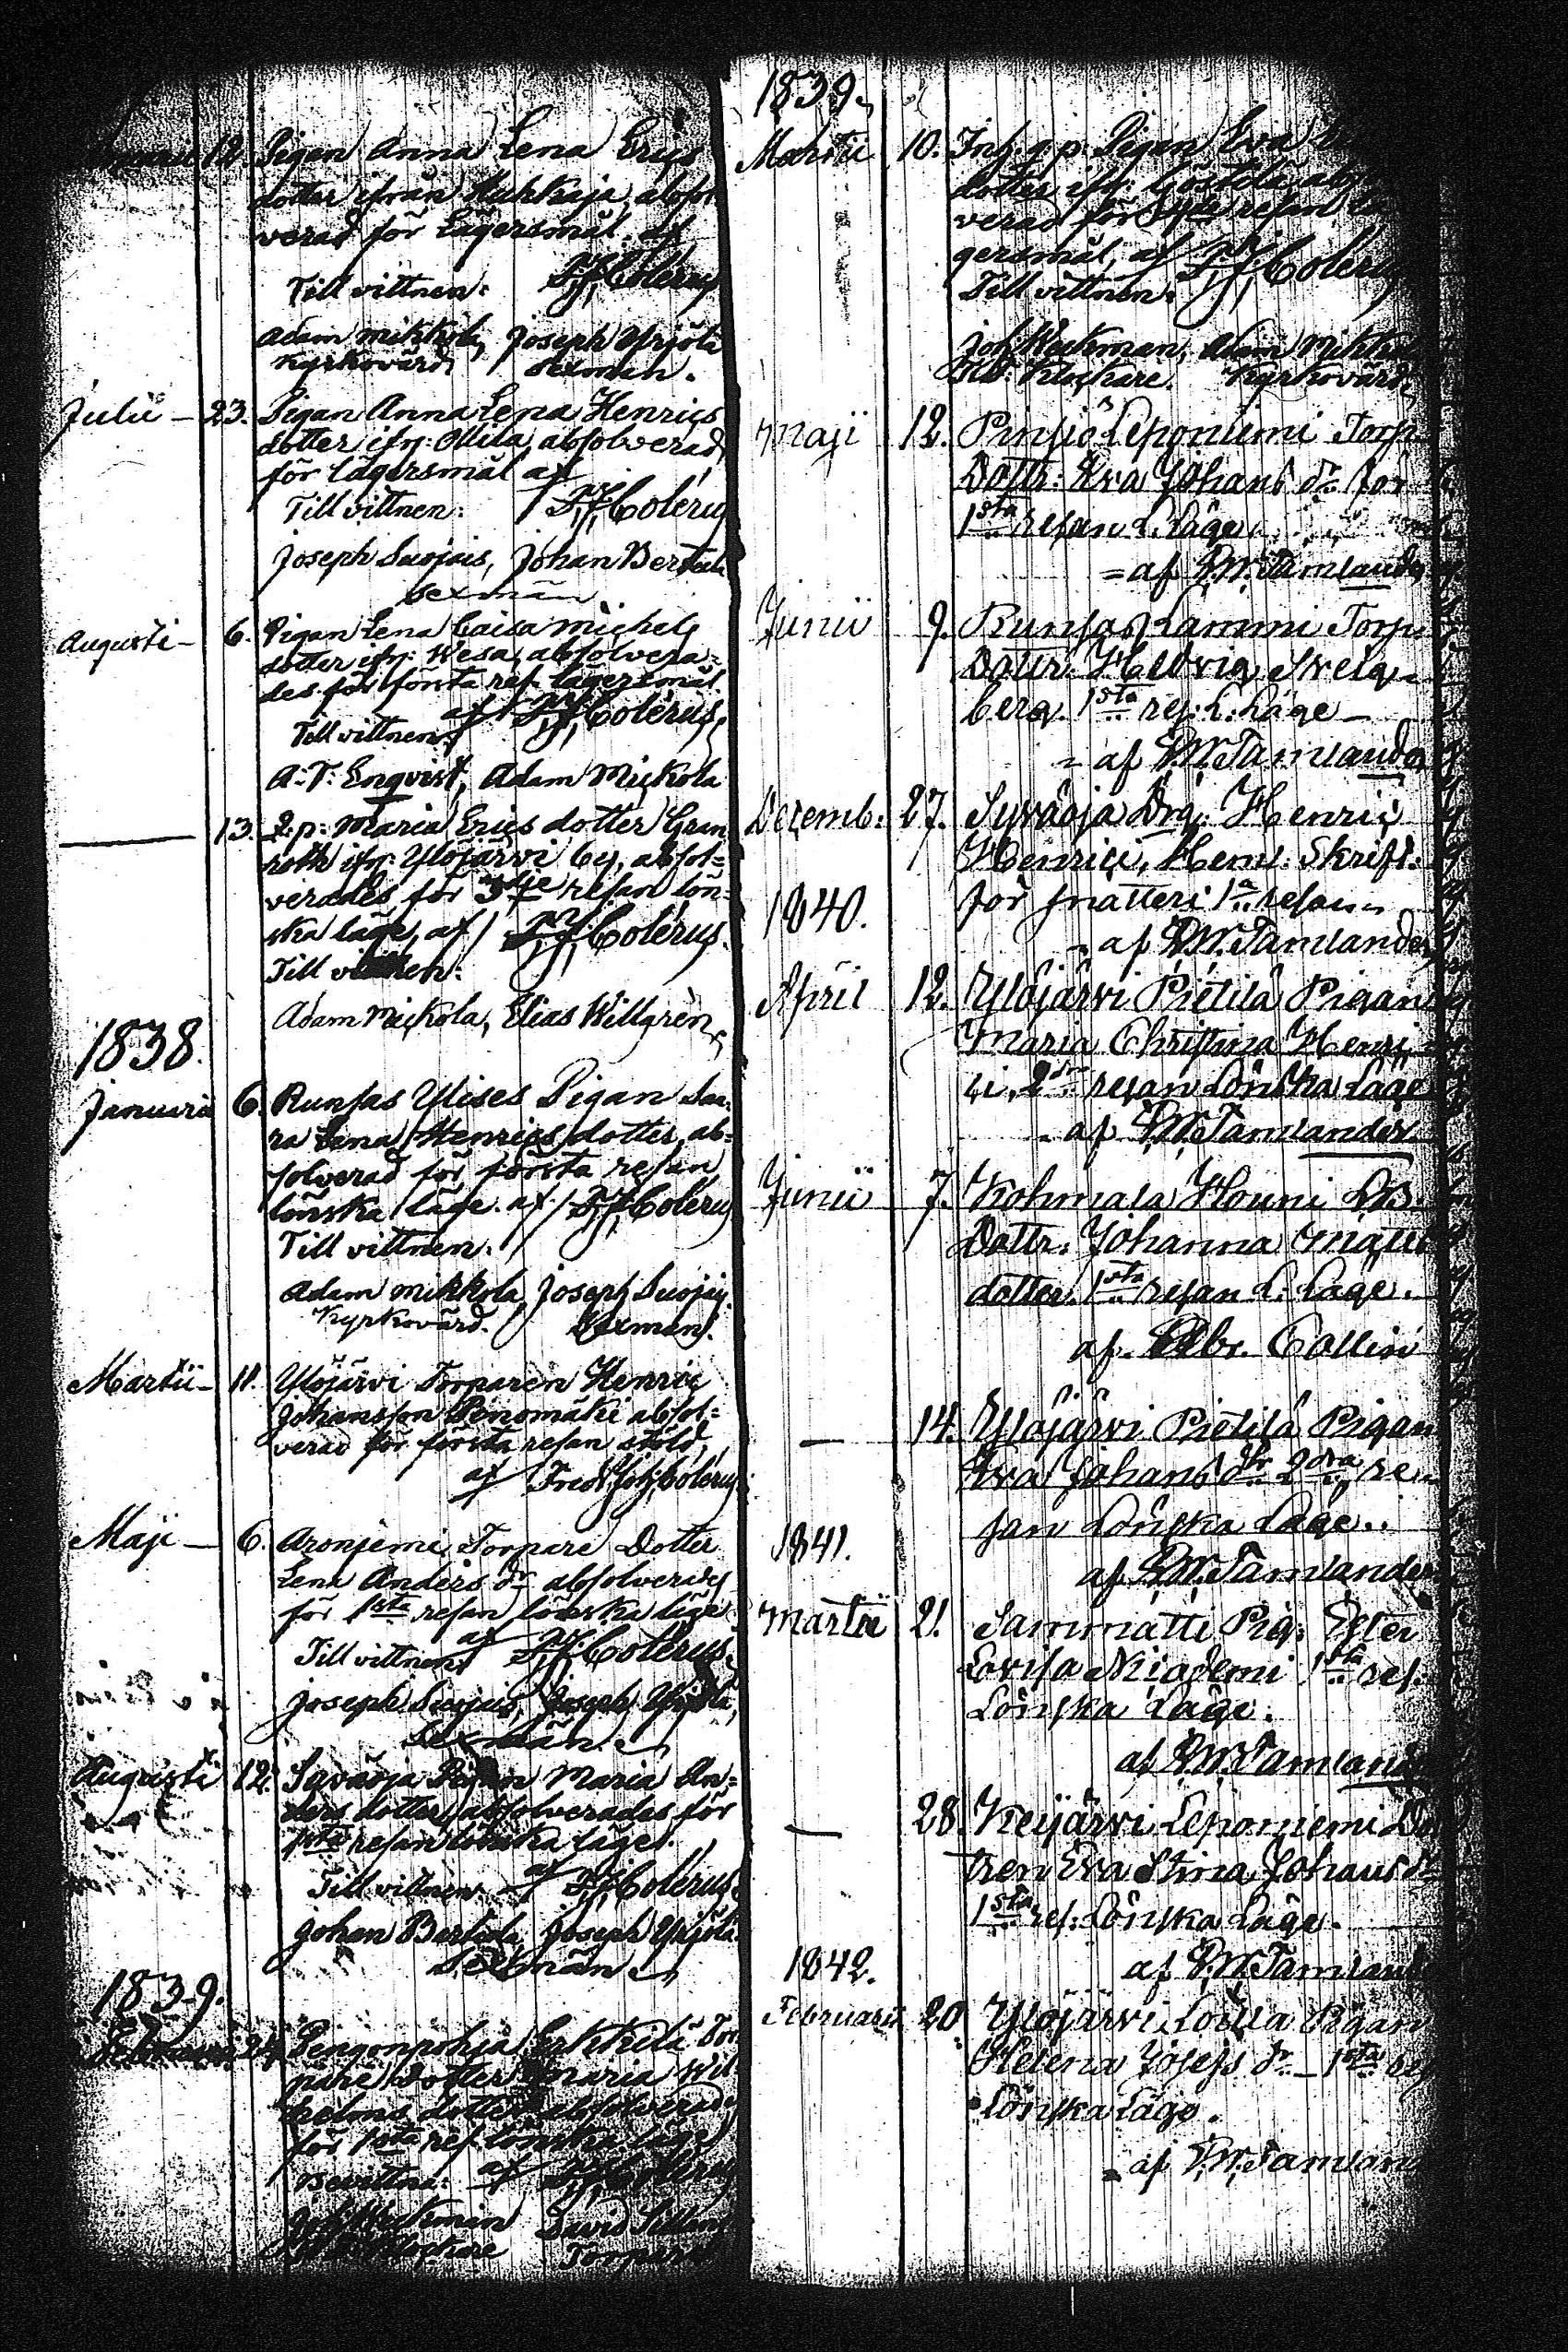 12. Pigan Anna Lena Erics
dotter ifrån Kuhkaja, absol
verad för Lägersmål. af
Till vittnen: F.J. Colerus
Adam Mikkola, Joseph Yrjölä
Kyrkovärd. Sexman.
Julii — 23. Pigan Anna Lena Henrics
dotter ifrn: Ollila, absolverad
för lägersmål af
Till vittnen: F.J. Colerus
Joseph Suojais, Johan Bertula
Sexmän
Augusti — 6. Pigan Lena Caisa Michels
dotter ifrn: Wesa, absolvera=
des för första res. lägersmål
af F.J. Colérus,
Till vittnen
A: T: Enqvist, Adam Mickola
— 13. Q: p: Maria Erics dotter Gran
roth ifrn: Ylöjärvi by, absol=
verades för 3dje resan lön=
ska läge, af F.J. Colérus.
Till vittnen:
Adam Mickola, Elias Willgrén,
1838.
Januarii 6. Runsas Ylises Pigan Sa=
ra Lena Henrics dotter ab=
solverad för första resan
lönska läge. af F.J. Colerus
Till vittnen.
Adam Mikkola, Joseph Suojais.
Kyrkovärd. Sexman.
Martii — 11. Ylöjärvi Torparen Henric
Johansson Penomäki absol=
verad för första resan stöld,
af Fredr. Joh. Colerus
Maji — 6. Aronjemi Torpare Dotter
Lena Anders dr absolverades
för 1sta resan lönska läge
af F.J. Colérus.
Till vittnen
Joseph Suojais, Joseph Yrjölä,
Sexmän.
Augusti 12. Savåoja Pigan Maria An=
ders dotter, absolverades för
1sta resan lönska läge.
Till vittnen af F.J. Colérus.
Johan Bertula, Joseph Yrjölä.
Sexmän
1839.
Februarii 24. Pengonpohja Erkkilä Tor
pare Dotter Maria Wil
helms dotter absolverades
för 1sta res. lönska läge
Bevittna: af F.J. Colerus
David
Torpare
1839.
Martii 10. Inh. q. p. Pigan Eva
dotter ifr:
verad för resan
gersmål, af F.J. Colerus
Till vittnen.
Joh. Weckman, Adam Mikkola
Klockare. Kyrkovärd,
Maji 12. Pinsiö Leponiemi Torp.
Dottr: Eva Johans dr för
1sta resan L. Läge.
= af P.W. Tamlander
Junii 9. Runsas Lammi Torp.
Dottr: Hedvig
berg. 1sta res: L: Läge —
= af P.W. Tamlander
Decemb: 27. Syväoja Drg: Henric
Henrici, Heml: Skrift:
för snatteri 1a resan
= af P.W. Tamlander
1840.
April 12. Ylöjärvi Pietilä Pigan
Maria Christina Henri
ci, 2dra resan Lönska Läge
= af P.W. Tamlander.
Junii 7. Kohmala Houni
Dottr. Johanna Matts
dotter. 1sta resan L. Läge.
af. Abr. Collin
— 14. Ylöjärvi Pietilä Pigan
Eva Johans dr 2dra re=
san Lönska Läge..
af P.W. Tamlander
1841.
Martii 21. Sammatti Pig: Ester
Lovisa 1sta res.
Lönska Läge.
af P.W. Tamland
— 28. Keijärvi Leponiemi Do
tren Eva Stina Johans dr
1sta res: Lönska Läge.
af P.W. Tamland
1842.
Februarii 20. Ylöjärvi Pigan
Helena Josefs dr — 1sta res
Lönska Läge.
= af P.W. Tamland